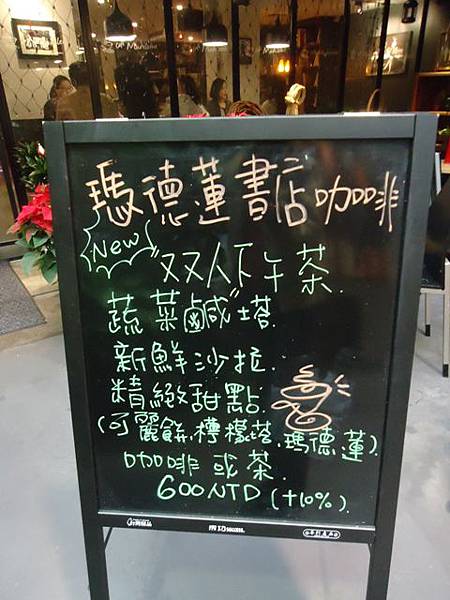 瑪德蓮書店咖啡
New
双人下午茶
蔬菜鹹塔
新鮮沙拉
精緻甜點
(可麗餅.檸檬塔.瑪德蓮)
咖啡或茶
600NTD (+10%)
成功success